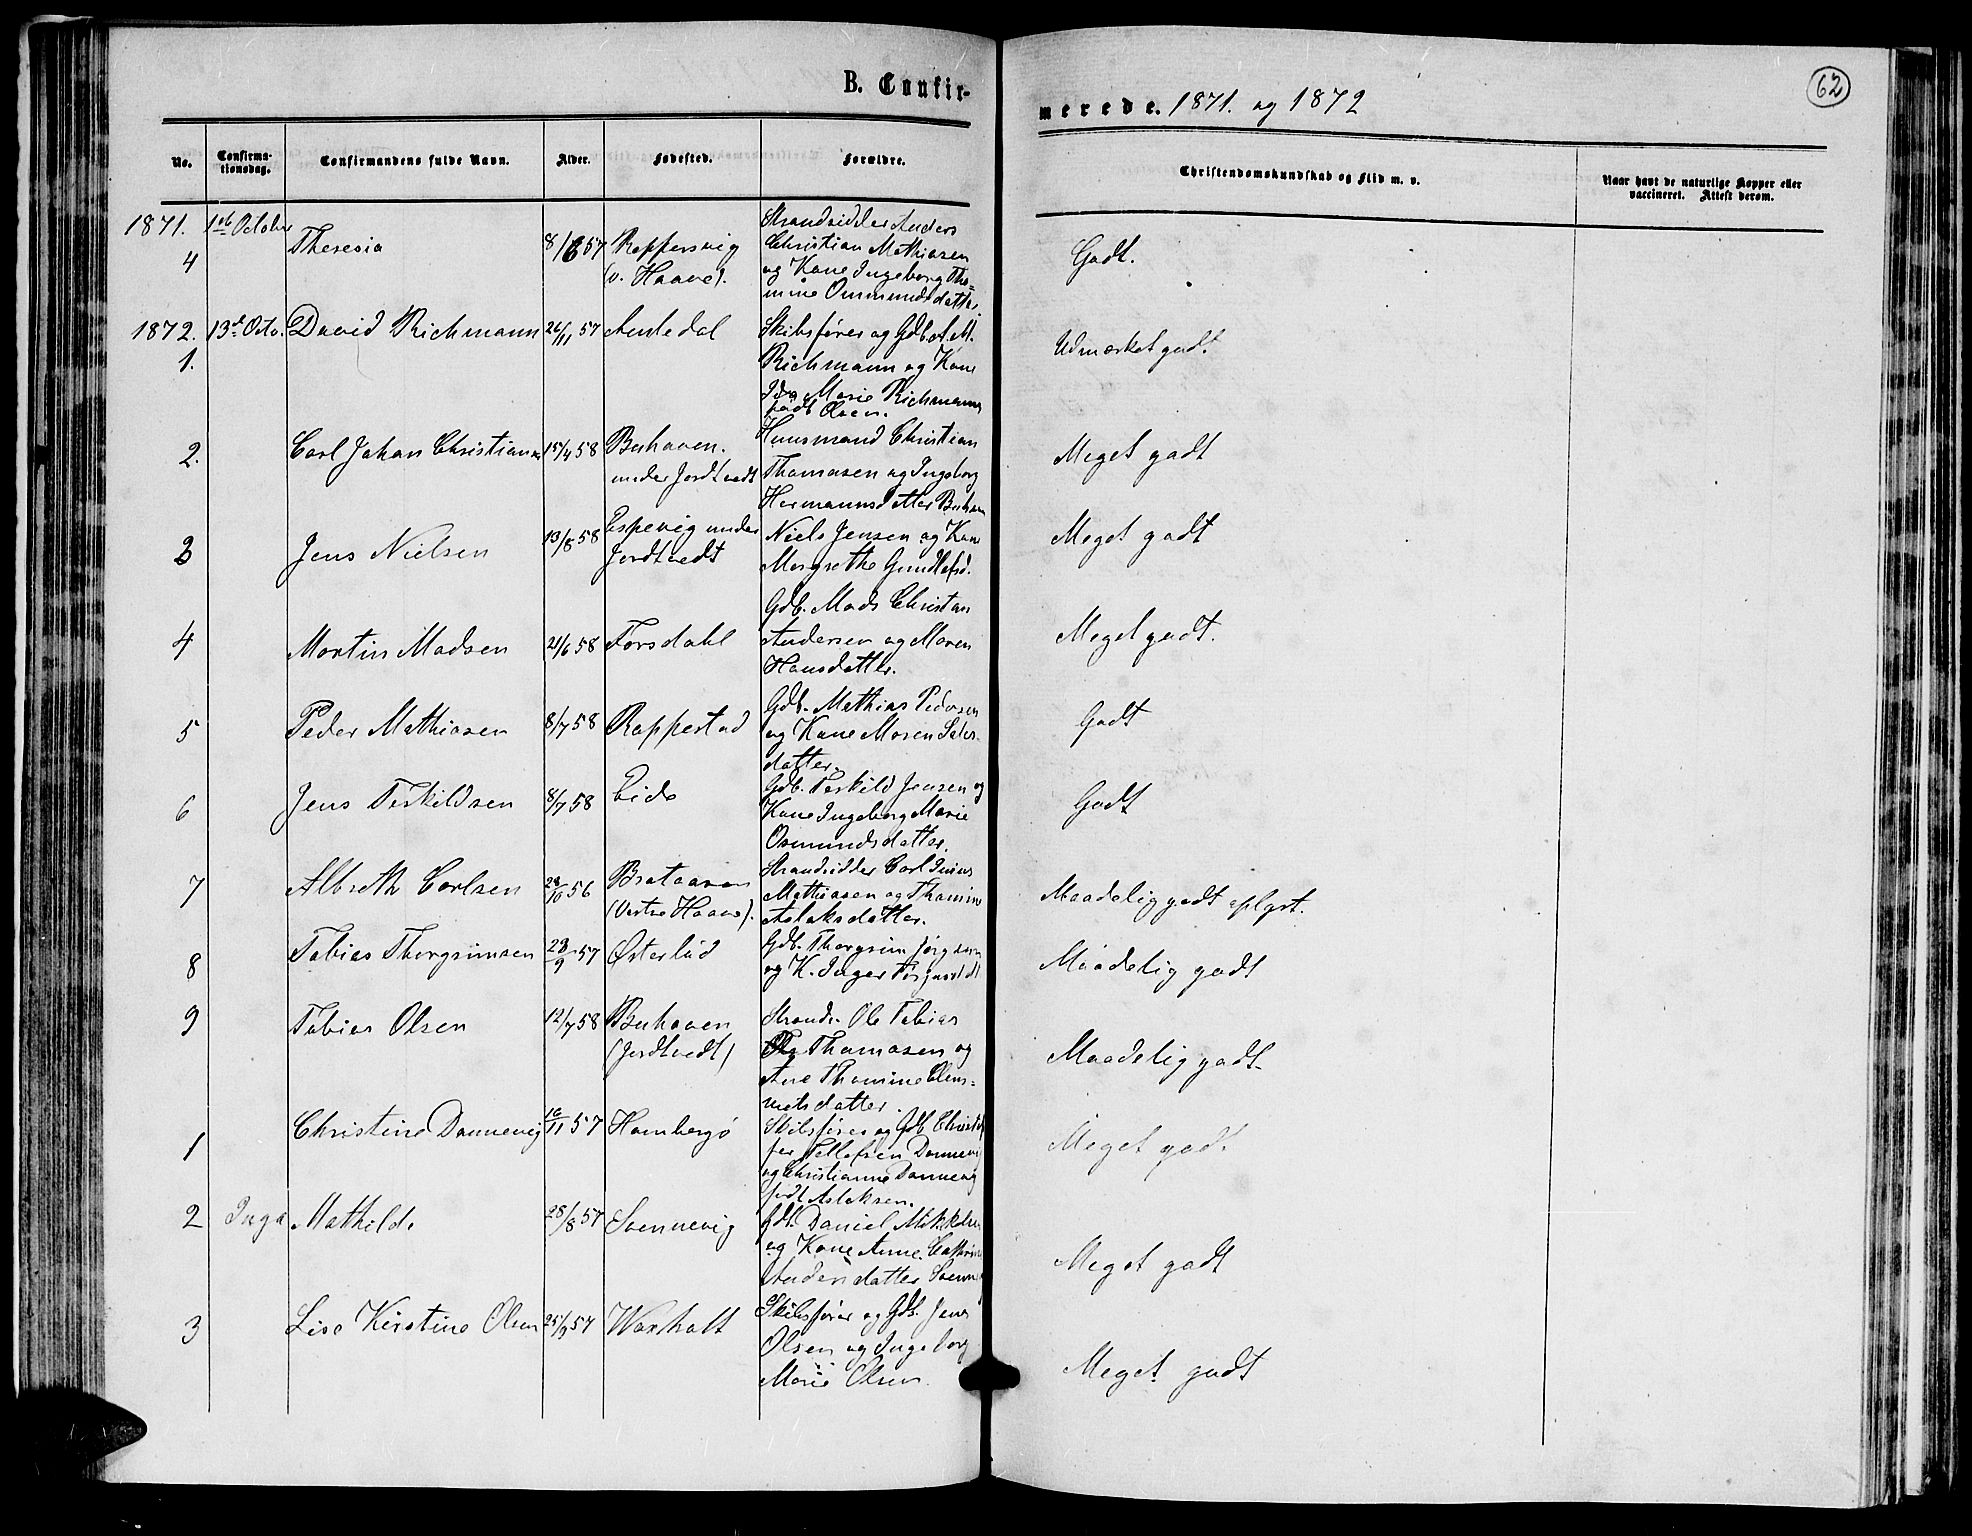 B. Confir-
merede. 1871. og 1872
62
No.
Confirma-
tionsdag.
Confirmandens fulde Navn.
Alder.
Fødested.
Forældre.
Christendomskundskab og Flid m. v.
Naar havt de naturlige Kopper eller
vaccineret. Attest derom.
1871. 1ste October
4 Theresia 8/6 57 Roppersvig
(v. Haave).
Strandsidder Anders
Christian Mathiasen
og Kone Ingeborg Tho=
mine Ommundsdatter
Godt.
1872. 13de Octo. David Richmann 26/11 57 Amledal
1.
Skibsfører og Gdb. A. M.
Richmann og Kone
Ida Marie Richmann
født Olsen.
Udmærket godt.
2. Carl Johan Christiansen 15/4 58 Buhaven.
under Jordtvedt
Huusmand Christian
Thomasen og Ingeborg
Hermannsdatter Buhaven
Meget godt
3 Jens Nielsen 13/8 58 Espevig under
Jordtvedt
Niels Jensen og Kone
Margrethe Gundlefsd.
Meget godt
4 Martin Madsen 21/6 58 Forsdahl
Gdb. Mads Christian
Andersen og Maren
Hansdatter.
Meget godt.
5 Peder Mathiasen 8/7 58 Roppestad
Gdb. Mathias Pedersen
og Kone Maren
datter.
Godt
6 Jens Terkildsen 8/7 58 Eide
Gdb. Terkild Jensen og
Kone Ingeborg Marie
Osmundsdatter.
Godt
7 Albreth Carlsen 28/10 56
(Vestre Haave).
Strandsidder Carl Junius
Mathiasen og Thomine
Aslaksdatter.
Maadelig godt oplyst.
8 Tobias Thorgrimsen 23/9 57 Østerlid
Gdb. Thorgrim Jørgensen
og K. Inger
Maadelig godt
9 Tobias Olsen 12/7 58 Buhaven
(Jordtvedt)
Strands. Ole Tobias
Thomasen og
Ane Thomine Clem=
metsdatter.
Maadelig godt.
1 Christine Dannevig 10/11 57 Homborgø
Skibsfører og Gdb. Christof
fer Tellefsen Dannevig
og Christianne Dannevig
født Aslaksen.
Meget godt.
2 Inga Mathilde 28/8 57 Svennevig
Gdb. Daniel Mikkelsen
og Kone Anne Cathrine
Andersdatter Svennevig
Meget godt
3 Lise Kirstine Olsen 25/9 57 Waxholt
Skibsfører og Gdb. Jens
Olsen og Ingeborg
Marie Olsen.
Meget godt